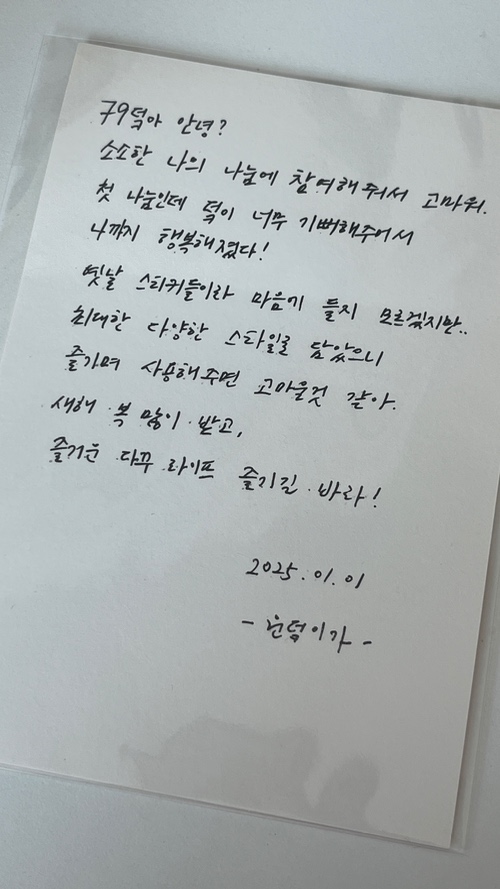 79덕아 안녕?
소소한 나의 나눔에 참여해줘서 고마워.
첫 나눔인데 덕이 너무 기뻐해주어서
나까지 행복해졌다!
옛날 스티커들이라 마음에 들지 모르겠지만..
최대한 다양한 스타일로 담았으니
즐기며 사용해주면 고마울것 같아.
새해 복 많이 받고,
즐거운 다꾸 라이프 즐기길 바라!
2025.01.01
- 운덕이가 -